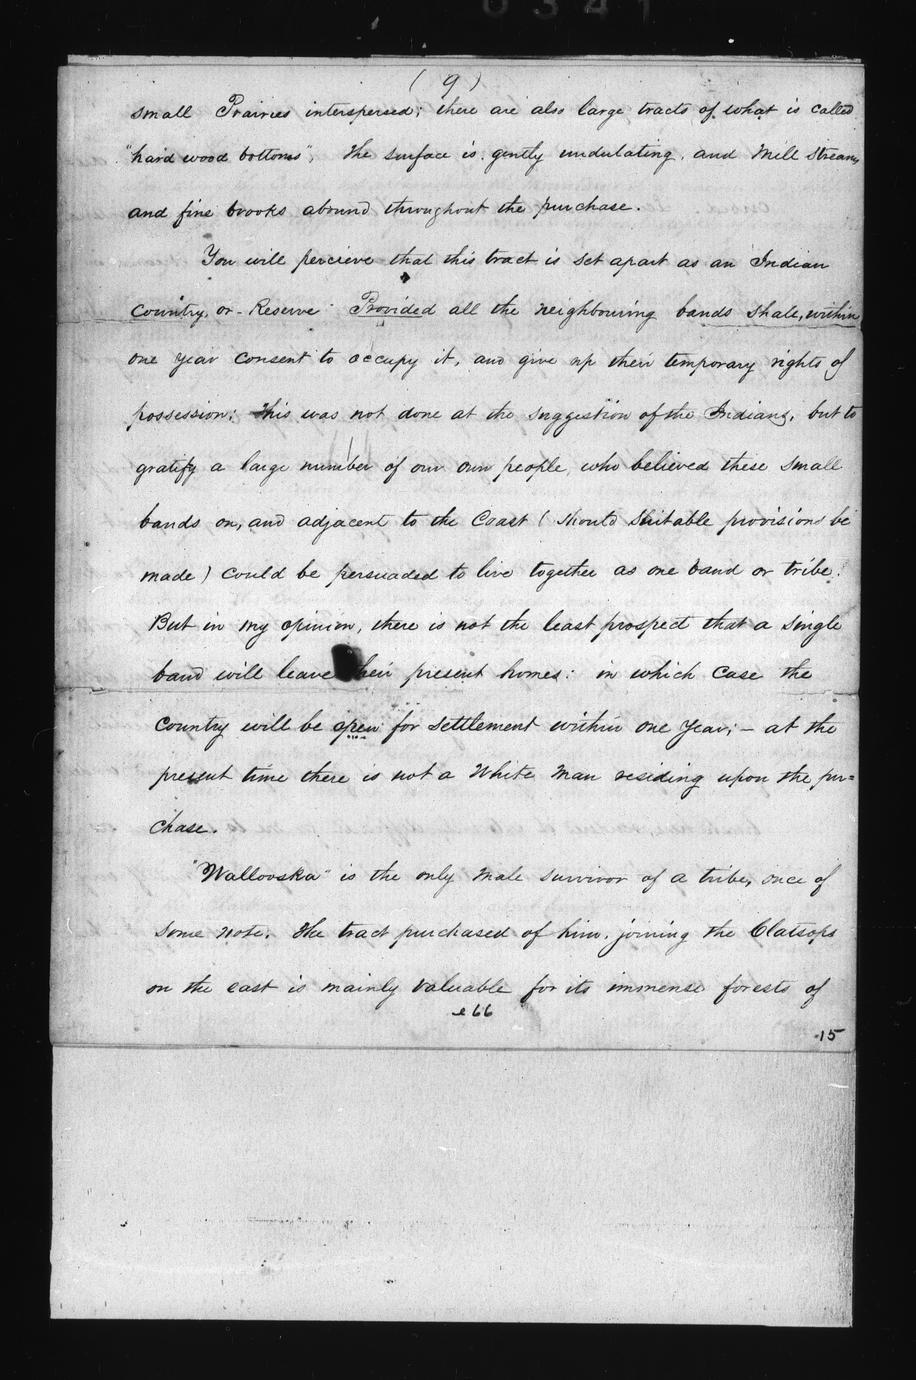 0341
(9)
small Prairies interspersed; there are also large tracts of what is called
"hard wood bottoms", The surface is gently undulating, and Mill Streams
and fine brooks abound throughout the purchase.
You will percieve that this tract is set apart as an Indian
Country, or Reserve Provided all the neighbouring bands shall, within
one year consent to occupy it, and give up their temporary rights of
possession; This was not done at the suggestion of the Indians, but to
gratify a large number of our own people, who believed these small
bands on, and adjacent to the Coast (should suitable provisions be
made) could be persuaded to live together as one band or tribe.
But in my opinion, there is not the least prospect that a single
band will leave their present homes: in which case the
Country will be open for settlement within one year; – at the
present time there is not a White man residing upon the pur=
chase.
"Wallooska" is the only male survivor of a tribe, once of
some note. The tract purchased of him, joining the Clatsops
on the east is mainly valuable for its immense forests of
e66
15